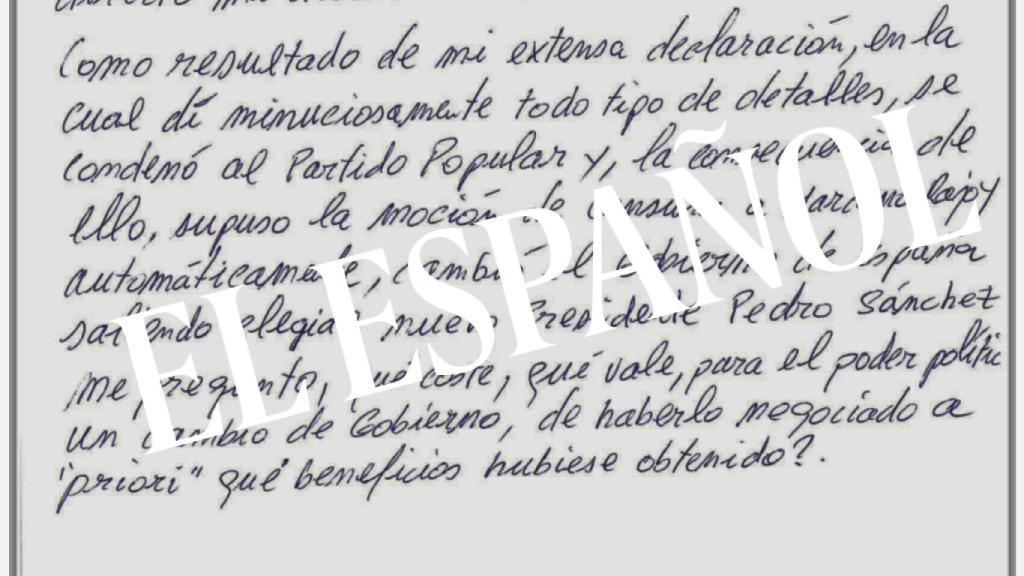 Como resultado de mi extensa declaración, en la
cual dí minuciosamente todo tipo de detalles, se
condenó al Partido Popular y, la consecuencia de
ello, supuso la moción de censura a Mariano Rajoy
automáticamente, cambió el Gobierno de España
saliendo elegido nuevo Presidente Pedro Sánchez
me pregunto, que coste, qué vale, para el poder polític
un cambio de Gobierno, de haberlo negociado a
"priori" qué beneficios hubiese obtenido?.
EL ESPAÑOL